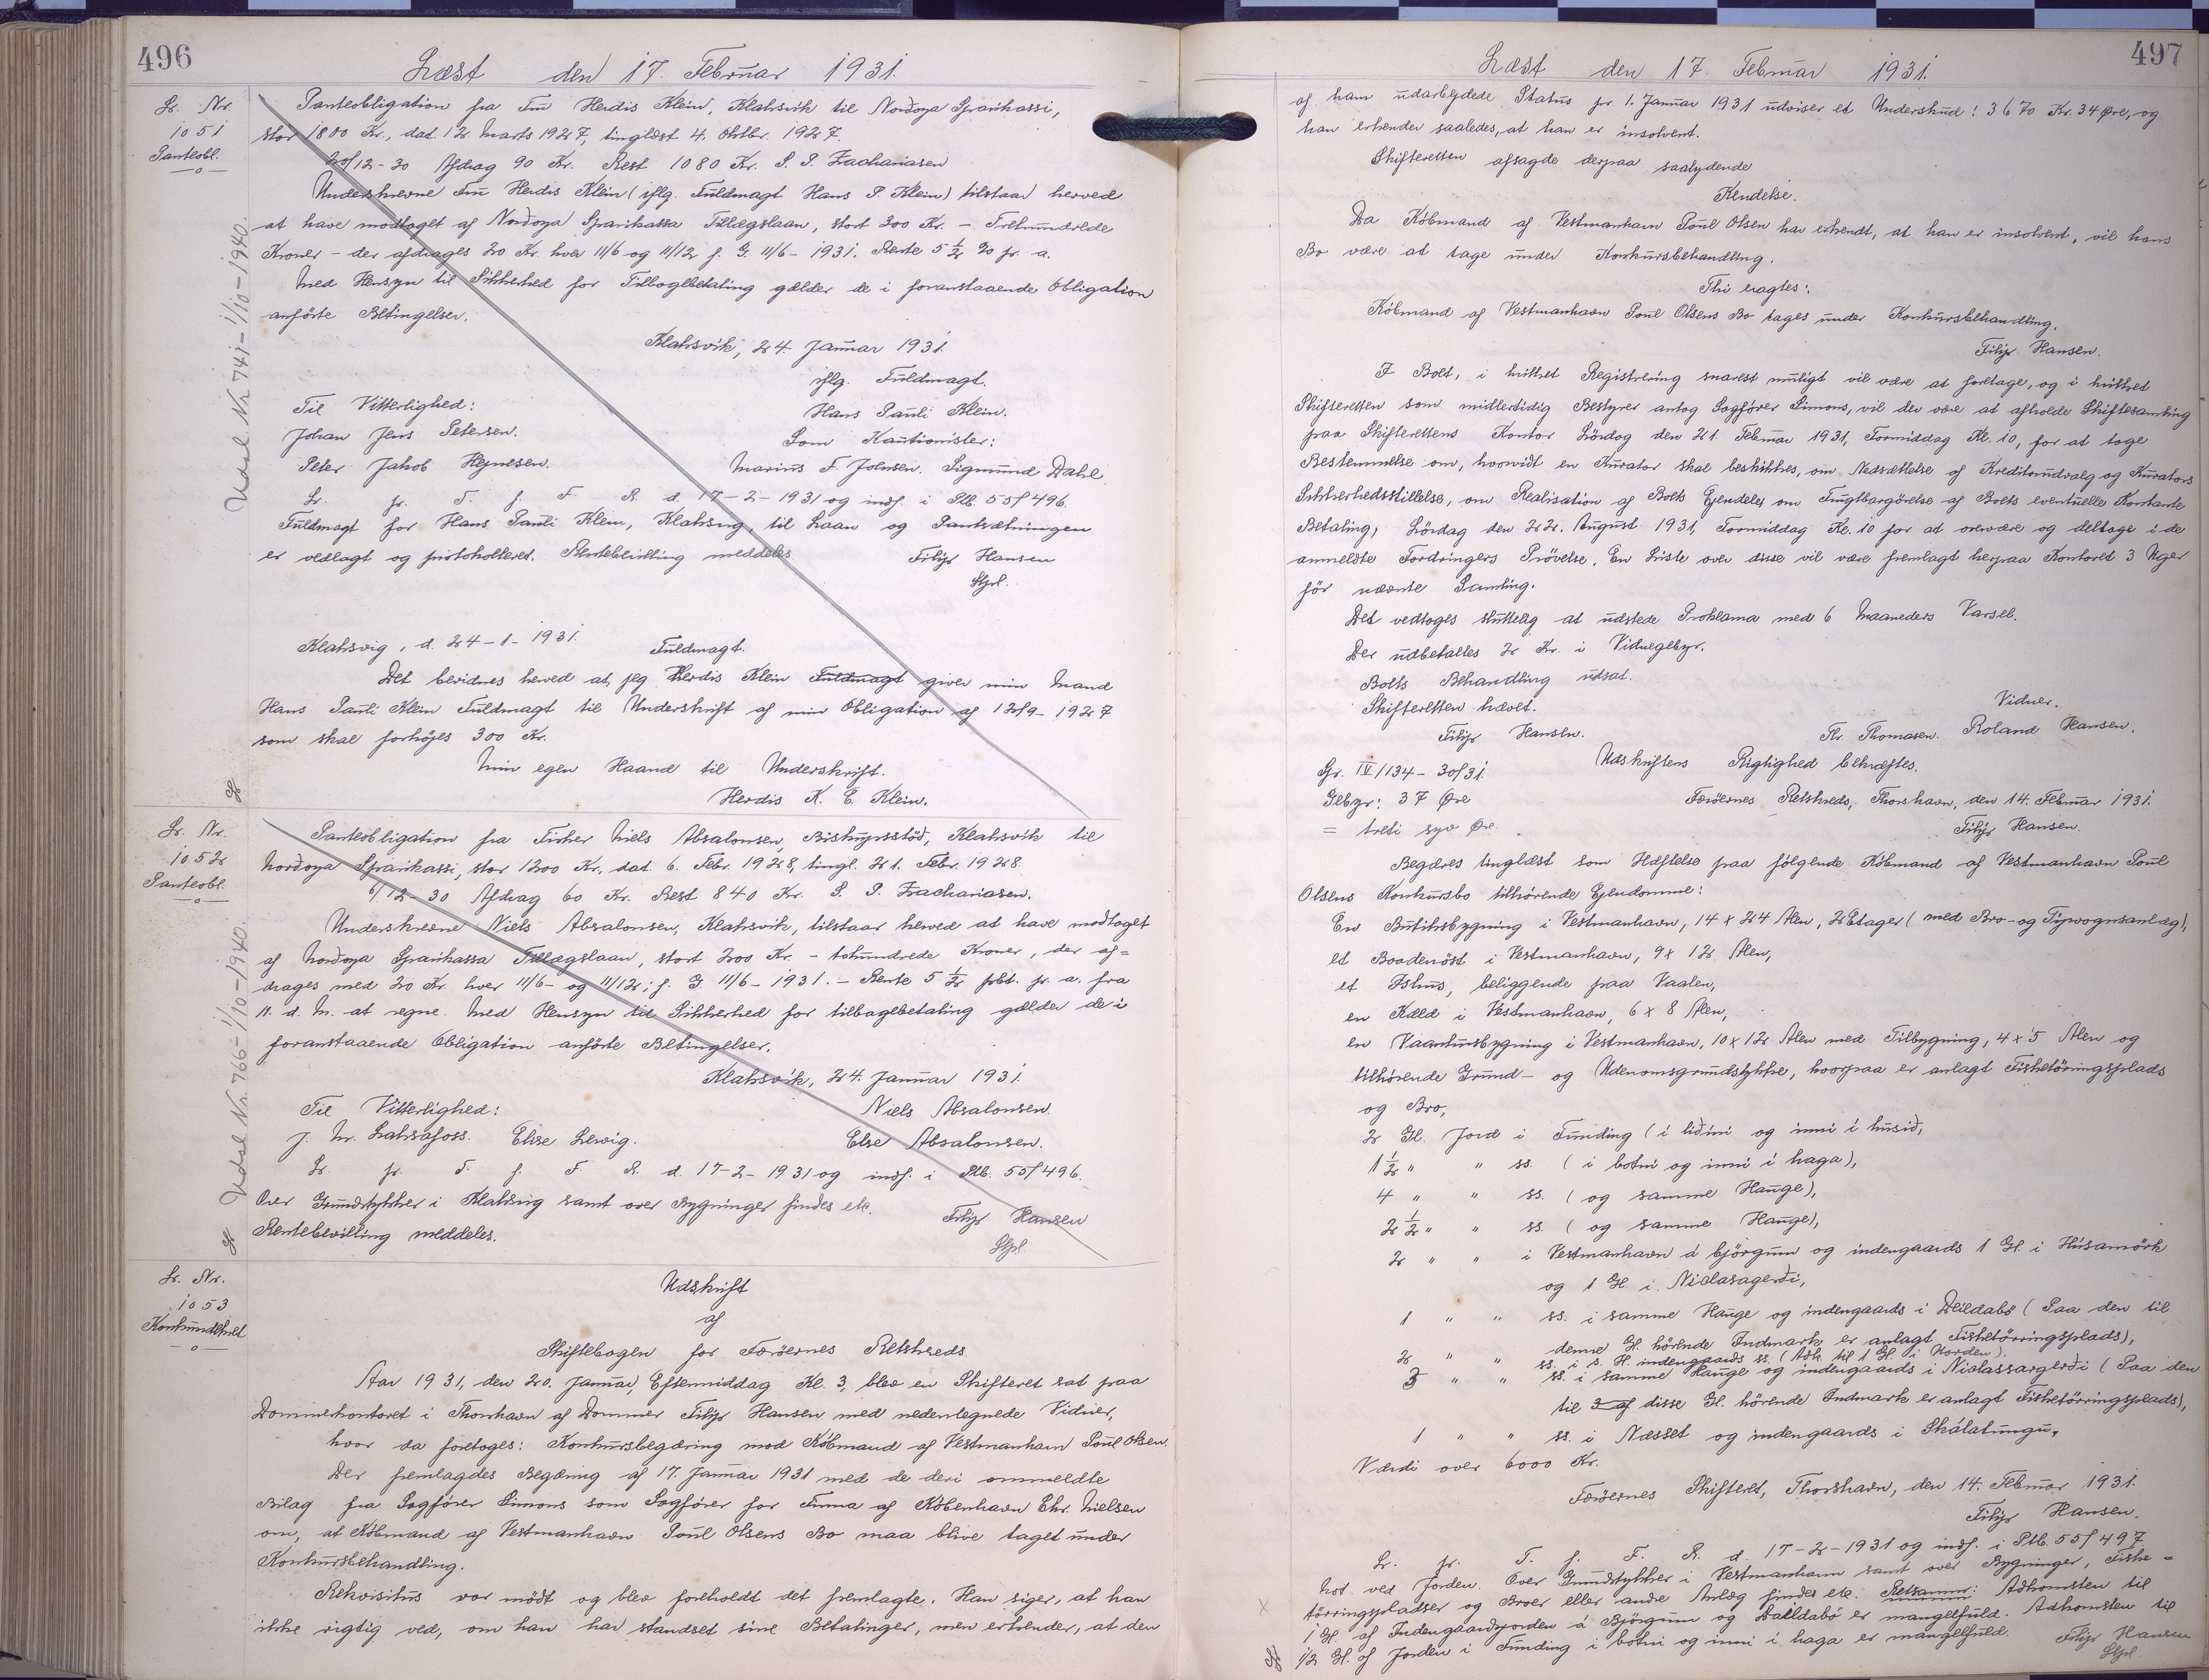 496
Læst den 17. Februar 1931.
Lr. Nr.
1051
Panteobl.
Panteobligation fra Fru Herdis Klein, Klaksvik til Nordoya Sparikassi,
stor 1800 Kr., dat. 12. Marts 1927, tinglæst 4. Oktbr. 1927.
20/12-30 Afdrag 90 Kr. Rest 1080 Kr. P. P. Zachariasen
Underskrevne Fru Herdis Klein (iflg. Fuldmagt Hans P. Klein) tilstaar herved
at have modtaget af Nordoya Sparikassa Tillægslaan, stort 300 Kr. - Trehundrede
Kroner - der afdrages 20 Kr. hver 11/6 og 11/12 f. G. 11/6-1931. Rente 5 1/2 % pr. a.
Med Hensyn til Sikkerhed for Tilbagebetaling gælder de i foranstaaende Obligation
anførte Betingelser.
Klaksvik, 24. Januar 1931.
iflg. Fuldmagt.
Til Vitterlighed:
Hans Pauli Klein.
Johan Jens Petersen.
Som Kautionister:
Peter Jakob Hejnesen.
Marius F. Johnsen. Sigmund Dahl.
Lr. pr. T. f. F. R. d. 17-2-1931 og indf. i Ptb. 55/496.
Fuldmagt for Hans Pauli Klein, Klaksvig, til Laan og Pantsætningen
er vedlagt og protokolleret. Rentebevilling meddeles
Filip Hansen
Stpl.
Udsl. Nr. 741 - 1/10-1940.
Klaksvig, d. 24-1-1931.
Fuldmagt.
Det bevidnes herved at jeg Herdis Klein Fuldmagt giver min Mand
Hans Pauli Klein Fuldmagt til Underskrift af min Obligation af 12/9-1927
som skal forhøjes 300 Kr.
Min egen Haand til Underskrift.
Herdis K. E. Klein.
Lr. Nr.
1052
Panteobl.
Panteobligation fra Fisker Niels Absalonsen, Biskupsstöð, Klaksvik til
Nordoya Sparikassi, stor 1200 Kr., dat. 6. Febr. 1928, tingl. 21. Febr. 1928.
6/12-30 Afdrag 60 Kr. Rest 840 Kr. P. P. Zachariasen.
Underskrevne Niels Absalonsen, Klaksvik, tilstaar herved at have modtaget
af Nordoya Sparikassa Tillægslaan, stort 200 Kr. - tohundrede Kroner, der af=
drages med 20 Kr. hver 11/6- og 11/12; f. G. 11/6-1931. - Rente 5 1/2 pCt. pr. a. fra
11. d. M. at regne. Med Hensyn til Sikkerhed for tilbagebetaling gælder de i
foranstaaende Obligation anførte Betingelser.
Klaksvik, 24. Januar 1931.
Til Vitterlighed:
Niels Absalonsen.
Elise Lervig.
Else Absalonsen.
Lr. pr. T. f. F. R. d. 17-2-1931 og indf. i Ptb. 55/496.
Over Grundstykker i Klaksvig samt over Bygninger findes etc.
Rentebevilling meddeles.
Filip Hansen
Stpl.
Udsl. Nr. 766 - 1/10-1940.
Lr. Nr.
1053
Konkursdekret
Udskrift
af
Skiftebogen for Færøernes Retskreds.
Aar 1931, den 20. Januar, Eftermiddag Kl. 3, blev en Skifteret sat paa
Dommerkontoret i Thorshavn af Dommer Filip Hansen med nedentegnede Vidner,
hvor da foretoges: Konkursbegæring mod Købmand af Vestmanhavn Poul Olsen.
Der fremlagdes Begæring af 17. Januar 1931 med de deri ommeldte
Bilag fra Sagfører Simons som Sagfører for Firma af København Chr. Nielsen
om, at Købmand af Vestmanhavn Poul Olsens Bo maa blive taget under
Konkursbehandling.
Rekvisitus var mødt og blev foreholdt det fremlagte. Han siger, at han
ikke rigtig ved, om han har standset sine Betalinger, men erkender, at den
497
Læst den 17. Februar 1931.
af ham udarbejdede Status pr. 1. Januar 1931 udviser et Underskud: 3670 Kr. 34 Øre, og
han erkender saaledes, at han er insolvent.
Skifteretten afsagde derpaa saalydende
Kendelse.
Da Købmand af Vestmanhavn Poul Olsen har erkendt, at han er insolvent, vil hans
Bo være at tage under Konkursbehandling.
Thi eragtes:
Købmand af Vestmanhavn Poul Olsens Bo tages under Konkursbehandling.
Filip Hansen.
I Boet, i hvilket Registrering snarest muligt vil være at foretage, og i hvilket
Skifteretten som midlertidig Bestyrer antog Sagfører Simons, vil der være at afholde Skiftesamling
paa Skifterettens Kontor Lørdag den 21. Februar 1931, Formiddag Kl. 10, for at tage
Bestemmelse om, hvorvidt en Kurator skal beskikkes, om Nedsættelse af Kreditorudvalg og Kurators
Sikkerhedsstillelse, om Realisation af Boets Ejendele, om Frugtbargørelse af Boets eventuelle Kontante
Betaling, Lørdag den 22. August 1931, Formiddag Kl. 10 for at overvære og deltage i de
anmeldte Fordringers Prøvelse. En Liste over disse vil være fremlagt herpaa Kontoret 3 Uger
før nævnte Samling.
Det vedtoges sluttelig at udstede Proklama med 6 Maaneders Varsel.
Der udbetaltes 2 Kr. i Vidnegebyr.
Boets Behandling udsat.
Skifteretten hævet.
Vidner.
Filip Hansen.
Thr. Thomasen. Roland Hansen.
Gr. IV/134 - 30/31.
Udskriftens Rigtighed bekræftes.
Gebyr: 37 Øre
Færøernes Retskreds, Thorshavn, den 14. Februar 1931.
= treti syv Øre.
Filip Hansen.
Begæres tinglæst som Hæftelse paa følgende Købmand af Vestmanhavn Poul
Olsens Konkursbo tilhørende Ejendomme:
En Butiksbygning i Vestmanhavn, 14 x 24 Alen, 2 Etager (med Bro- og Tipvognsanlæg),
et Baadenöst i Vestmanhavn, 9 x 12 Alen,
et Ishus, beliggende paa Vaalen,
en Kæld i Vestmanhavn, 6 x 8 Alen,
en Vaanhusbygning i Vestmanhavn, 10 x 12 Alen med Tilbygning, 4 x 5 Alen og
tilhørende Grund- og Udenomsgrundstykke, hvorpaa er anlagt Fisketørringsplads
og Bro,
2 Gl. Jord i Funding (i liðini og inni í húsið,
1 1/2 " " ss. (i botni og inni í haga),
4 " " ss. (og samme Hauge),
2 1/2 " " ss. (og samme Hauge),
2 " " i Vestmanhavn á björgum og indengaards 1 Gl. i Húsamörk
og 1 Gl. i Niclasagerði,
1 " " ss. i samme Hauge og indengaards i Deildabö (Paa den til
denne Gl. hörende Indmark er anlagt Fisketørringsplads),
2 " " ss. i s. H. indengaards ss. (Adk. til 1 Gl. i Norden).
3 " " ss. i samme Hauge og indengaards i Niclassargerði (Paa den
til 3 af disse Gl. hörende Indmark er anlagt Fisketørringsplads),
1 " " ss. i Næsset og indengaards i Skálatungu,
Værdi over 6000 Kr.
Færøernes Skifteret, Thorshavn, den 14. Februar 1931.
Filip Hansen.
Lr. pr. T. f. F. R. d. 17-2-1931 og indf. i Ptb. 55/497
Not. ved Jorden. Over Grundstykker i Vestmanhavn samt over Bygninger, Fiske=
tørringspladser og Broer eller andre Anlæg findes etc. Retsanm: Adkomsten til
1 Gl. af Indengaardsjorden á Björgum og Dalldabö er mangelfuld. Adkomsten til
1/2 Gl. af Jorden i Funding i botni og inni í haga er mangelfuld.
Filip Hansen
Stpl.